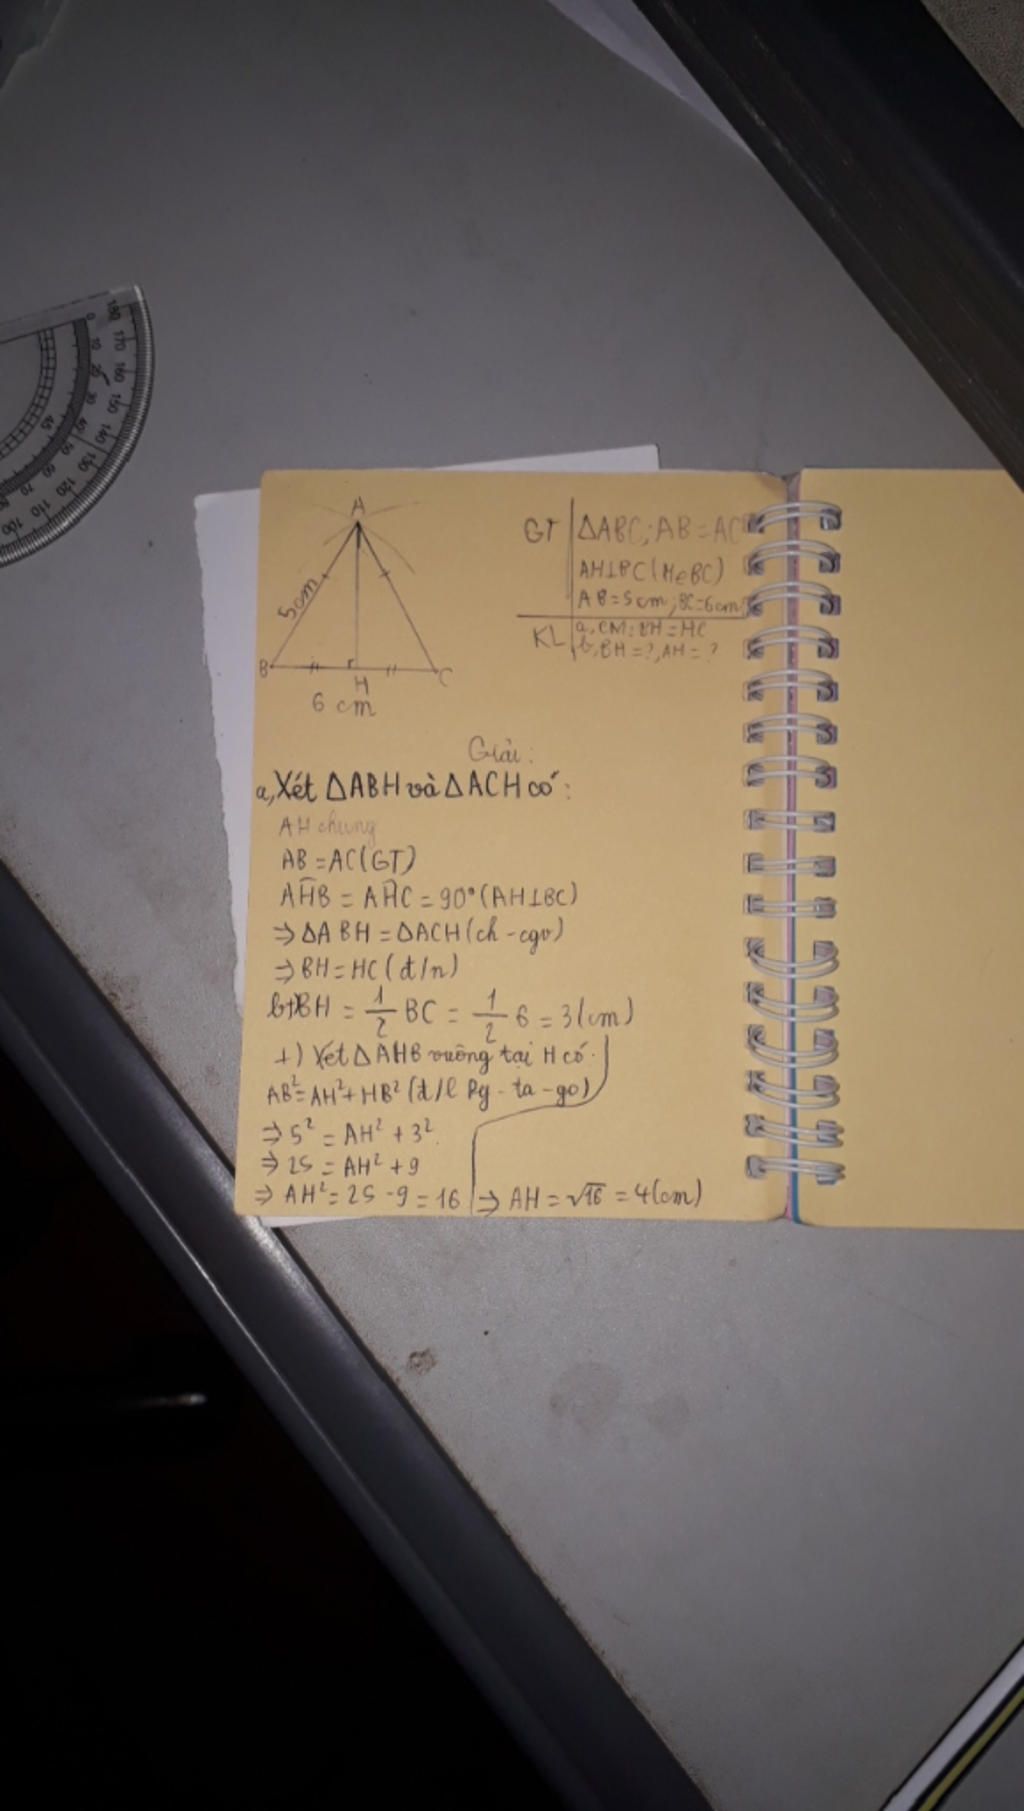 A
5cm
B
H
C
6 cm
GT
ΔABC; AB = AC
AH⊥BC (H∈BC)
AB = 5cm; BC = 6cm
KL
a, CM: BH = HC
b, BH = ?, AH = ?
Giải:
a, Xét ΔABH và ΔACH có:
AH chung
AB = AC (GT)
AĤB = AĤC = 90° (AH⊥BC)
⇒ ΔABH = ΔACH (ch - cgv)
⇒ BH = HC (đ/n)
b, +) BH = 1/2 BC = 1/2 6 = 3 (cm)
+) Xét ΔAHB vuông tại H có:
AB² = AH² + HB² (đ/l Py - ta - go)
⇒ 5² = AH² + 3²
⇒ 25 = AH² + 9
⇒ AH² = 25 - 9 = 16 ⇒ AH = √16 = 4 (cm)
180 170 160 150 140 130 120 110 100
0 10 20 30 40 50 60 70 80
45